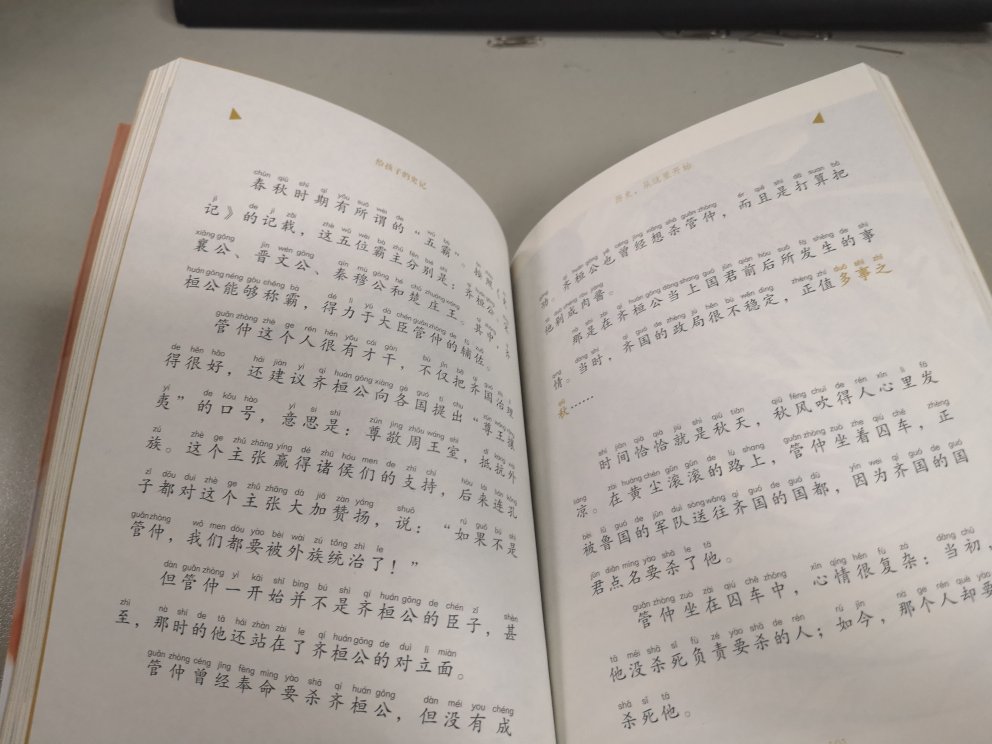 给孩子的史记
春秋时期有所谓的“五霸”。按照《史
记》的记载，这五位霸主分别是：齐桓公、宋
襄公、晋文公、秦穆公和楚庄王。其中，齐
桓公能够称霸，得力于大臣管仲的辅佐。
管仲这个人很有才干，不仅把齐国治理
得很好，还建议齐桓公向各国提出“尊王攘
夷”的口号，意思是：尊敬周王室，抵抗外
族。这个主张赢得诸侯们的支持，后来连孔
子都对这个主张大加赞扬，说：“如果不是
管仲，我们都要被外族统治了！”
但管仲一开始并不是齐桓公的臣子，甚
至，那时的他还站在了齐桓公的对立面。
管仲曾经奉命要杀齐桓公，但没有成
历史，从这里开始
功。齐桓公也曾经想杀管仲，而且是打算把
他剁成肉酱。
那是在齐桓公当上国君前后所发生的事
情。当时，齐国的政局很不稳定，正值多事之
秋……
时间恰恰就是秋天，秋风吹得人心里发
凉。在黄尘滚滚的路上，管仲坐着囚车，正
被鲁国的军队送往齐国的国都，因为齐国的国
君点名要杀了他。
管仲坐在囚车中，心情很复杂：当初，
他没杀死负责要杀的人；如今，那个人却要
杀死他。